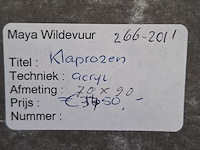 Maya Wildevuur 266-2011
Titel : Klaprozen
Techniek : acryl
Afmeting : 70 x 90
Prijs : € 50,-
Nummer :